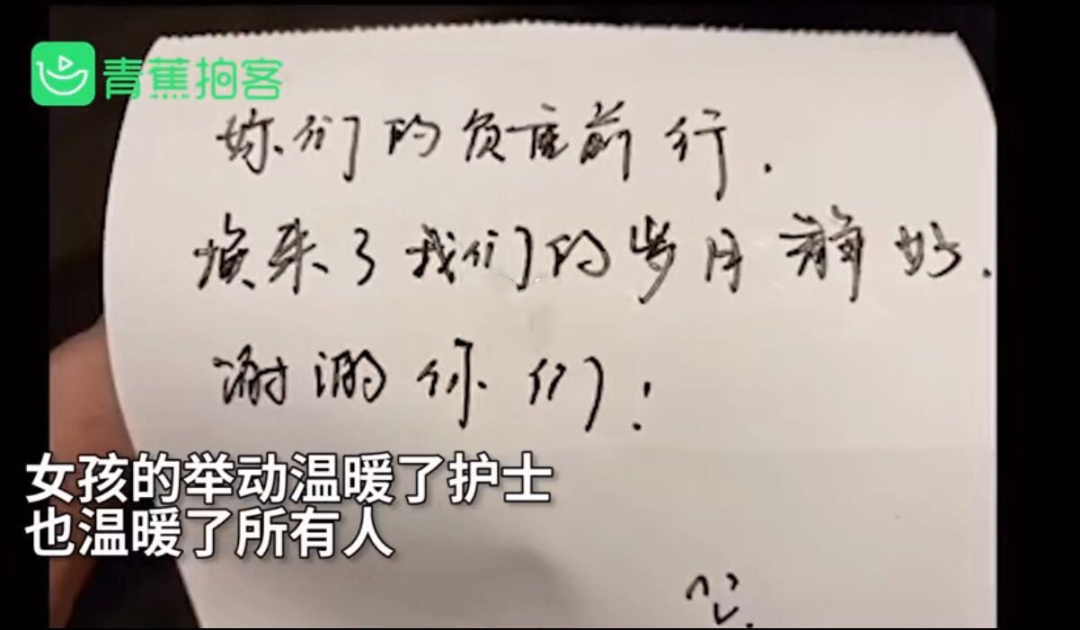 青蕉拍客
妳们的负重前行.
换来了我们的岁月静好.
谢谢你们!
女孩的举动温暖了护士
也温暖了所有人